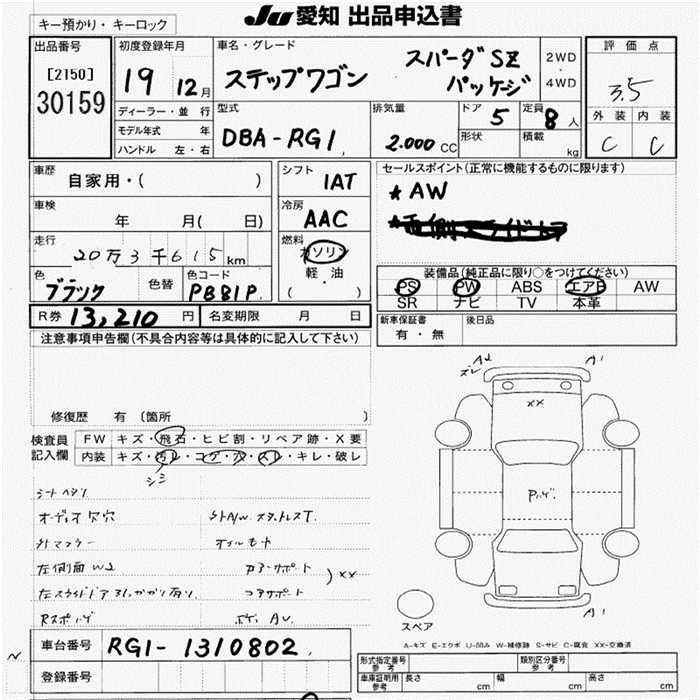 キー預かり・キーロック
JU 愛知 出品申込書
出品番号
[2150]
30159
初度登録年月
19 12月
車名・グレード
ステップワゴン スパーダSZ
パッケージ
2WD
4WD
評価点
3.5
外装 内装
C C
ディーラー・並行
モデル年式 年
ハンドル 左・右
型式
DBA-RG1
排気量
2.000 CC
ドア 5
定員 8人
形状
積載 kg
車歴
自家用・( )
シフト
IAT
セールスポイント(正常に機能するものに限ります)
★AW
車検
年 月( 日)
冷房
AAC
走行
20万3千615km
燃料
ガソリン
軽・油
( )
色
ブラック
色替
色コード
PB81P
装備品(純正品に限り○をつけてください)
PS PW ABS エアB AW
SR ナビ TV 本革
R券 13,210円
名変期限 月 日
新車保証書
有・無
後日品
注意事項申告欄(不具合内容等は具体的に記入して下さい)
修復歴 有 (箇所 )
検査員
記入欄
FW キズ・飛石・ヒビ割・リペア跡・X要
内装 キズ・汚レ・コゲ・穴・スレ・キレ・破レ
シミ
シートヘタリ
オーディオ欠穴
社外A/W スタッドレスT.
社外マフラー
オイルモレ
左側面W2
Fアーサポート
コアサポート
XX
左スライドドア引っかかり有り
Rスポイラ
A2
ズレ
A1
XX
A1
スペア
A-キズ E-エクボ U-凹み W-補修跡 S-サビ C-腐食 XX-交換済
車台番号
RG1-1310802
登録番号
形式指定番号
参考
類別区分番号
参考
車庫証明用
参考
長さ cm
幅 cm
高さ cm